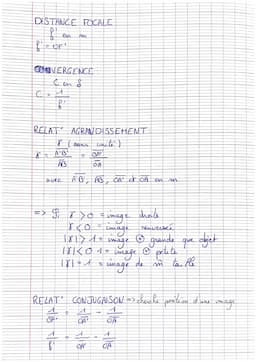 DISTANCE FOCALE
f' en m
f' = OF'
VERGENCE
C en δ
C = 1/f'
RELAT° AGRANDISSEMENT
γ (sans unité)
γ = A'B'/AB = OA'/OA
avec A'B', AB, OA' et OA en m
=> Si γ > 0 = image droite
γ < 0 = image renversée
|γ| > 1 = image ⊕ grande que objet
|γ| < 1 = image ⊕ petite
|γ| = 1 = image de m taille
RELAT° CONJUGAISON => cherche position d'une image
1/OF' = 1/OA' - 1/OA
1/f' = 1/OA' - 1/OA